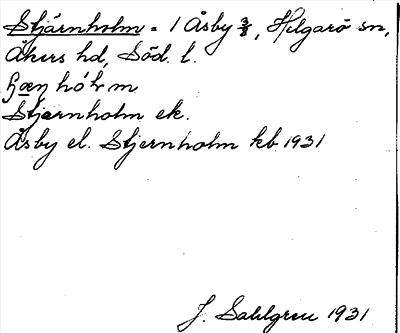 Stjärnholm = 1 Åsby 3/8, Helgarö sn,
Åkers hd, Söd. l.
hó'lm
Stjernholm ek.
Åsby el. Stjernholm kb 1931
J. Sahlgren 1931